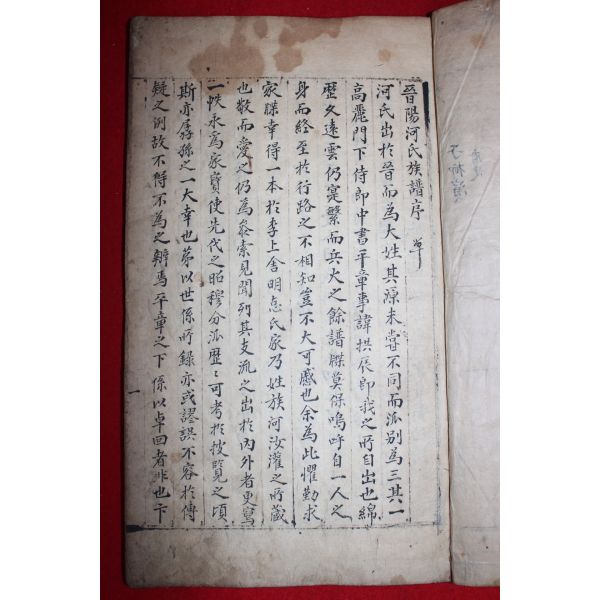 晉陽河氏族譜序 草
河氏出於晉而為大姓其源未嘗不同而派別為三其一
高麗門下侍郎中書平章事諱拱辰卽我之所自出也綿
歷久遠雲仍寔繁而兵火之餘譜牒莫保嗚呼自一人之
身而終至於行路之不相知豈不大可慼也余為此懼勤求
家牒幸得一本於李上舍明怘氏家乃姓族河汝灌之所藏
也敬而受之仍為參索見聞列其支流之出於內外者更寫
一帙永為家寶使先代之昭穆分派歷〻可考於披覽之頃
斯亦孱孫之一大幸也第以世係所錄亦或謬誤不容於傳
疑之例故不得不為之辨焉平章之下係以卓回者非也卞
一